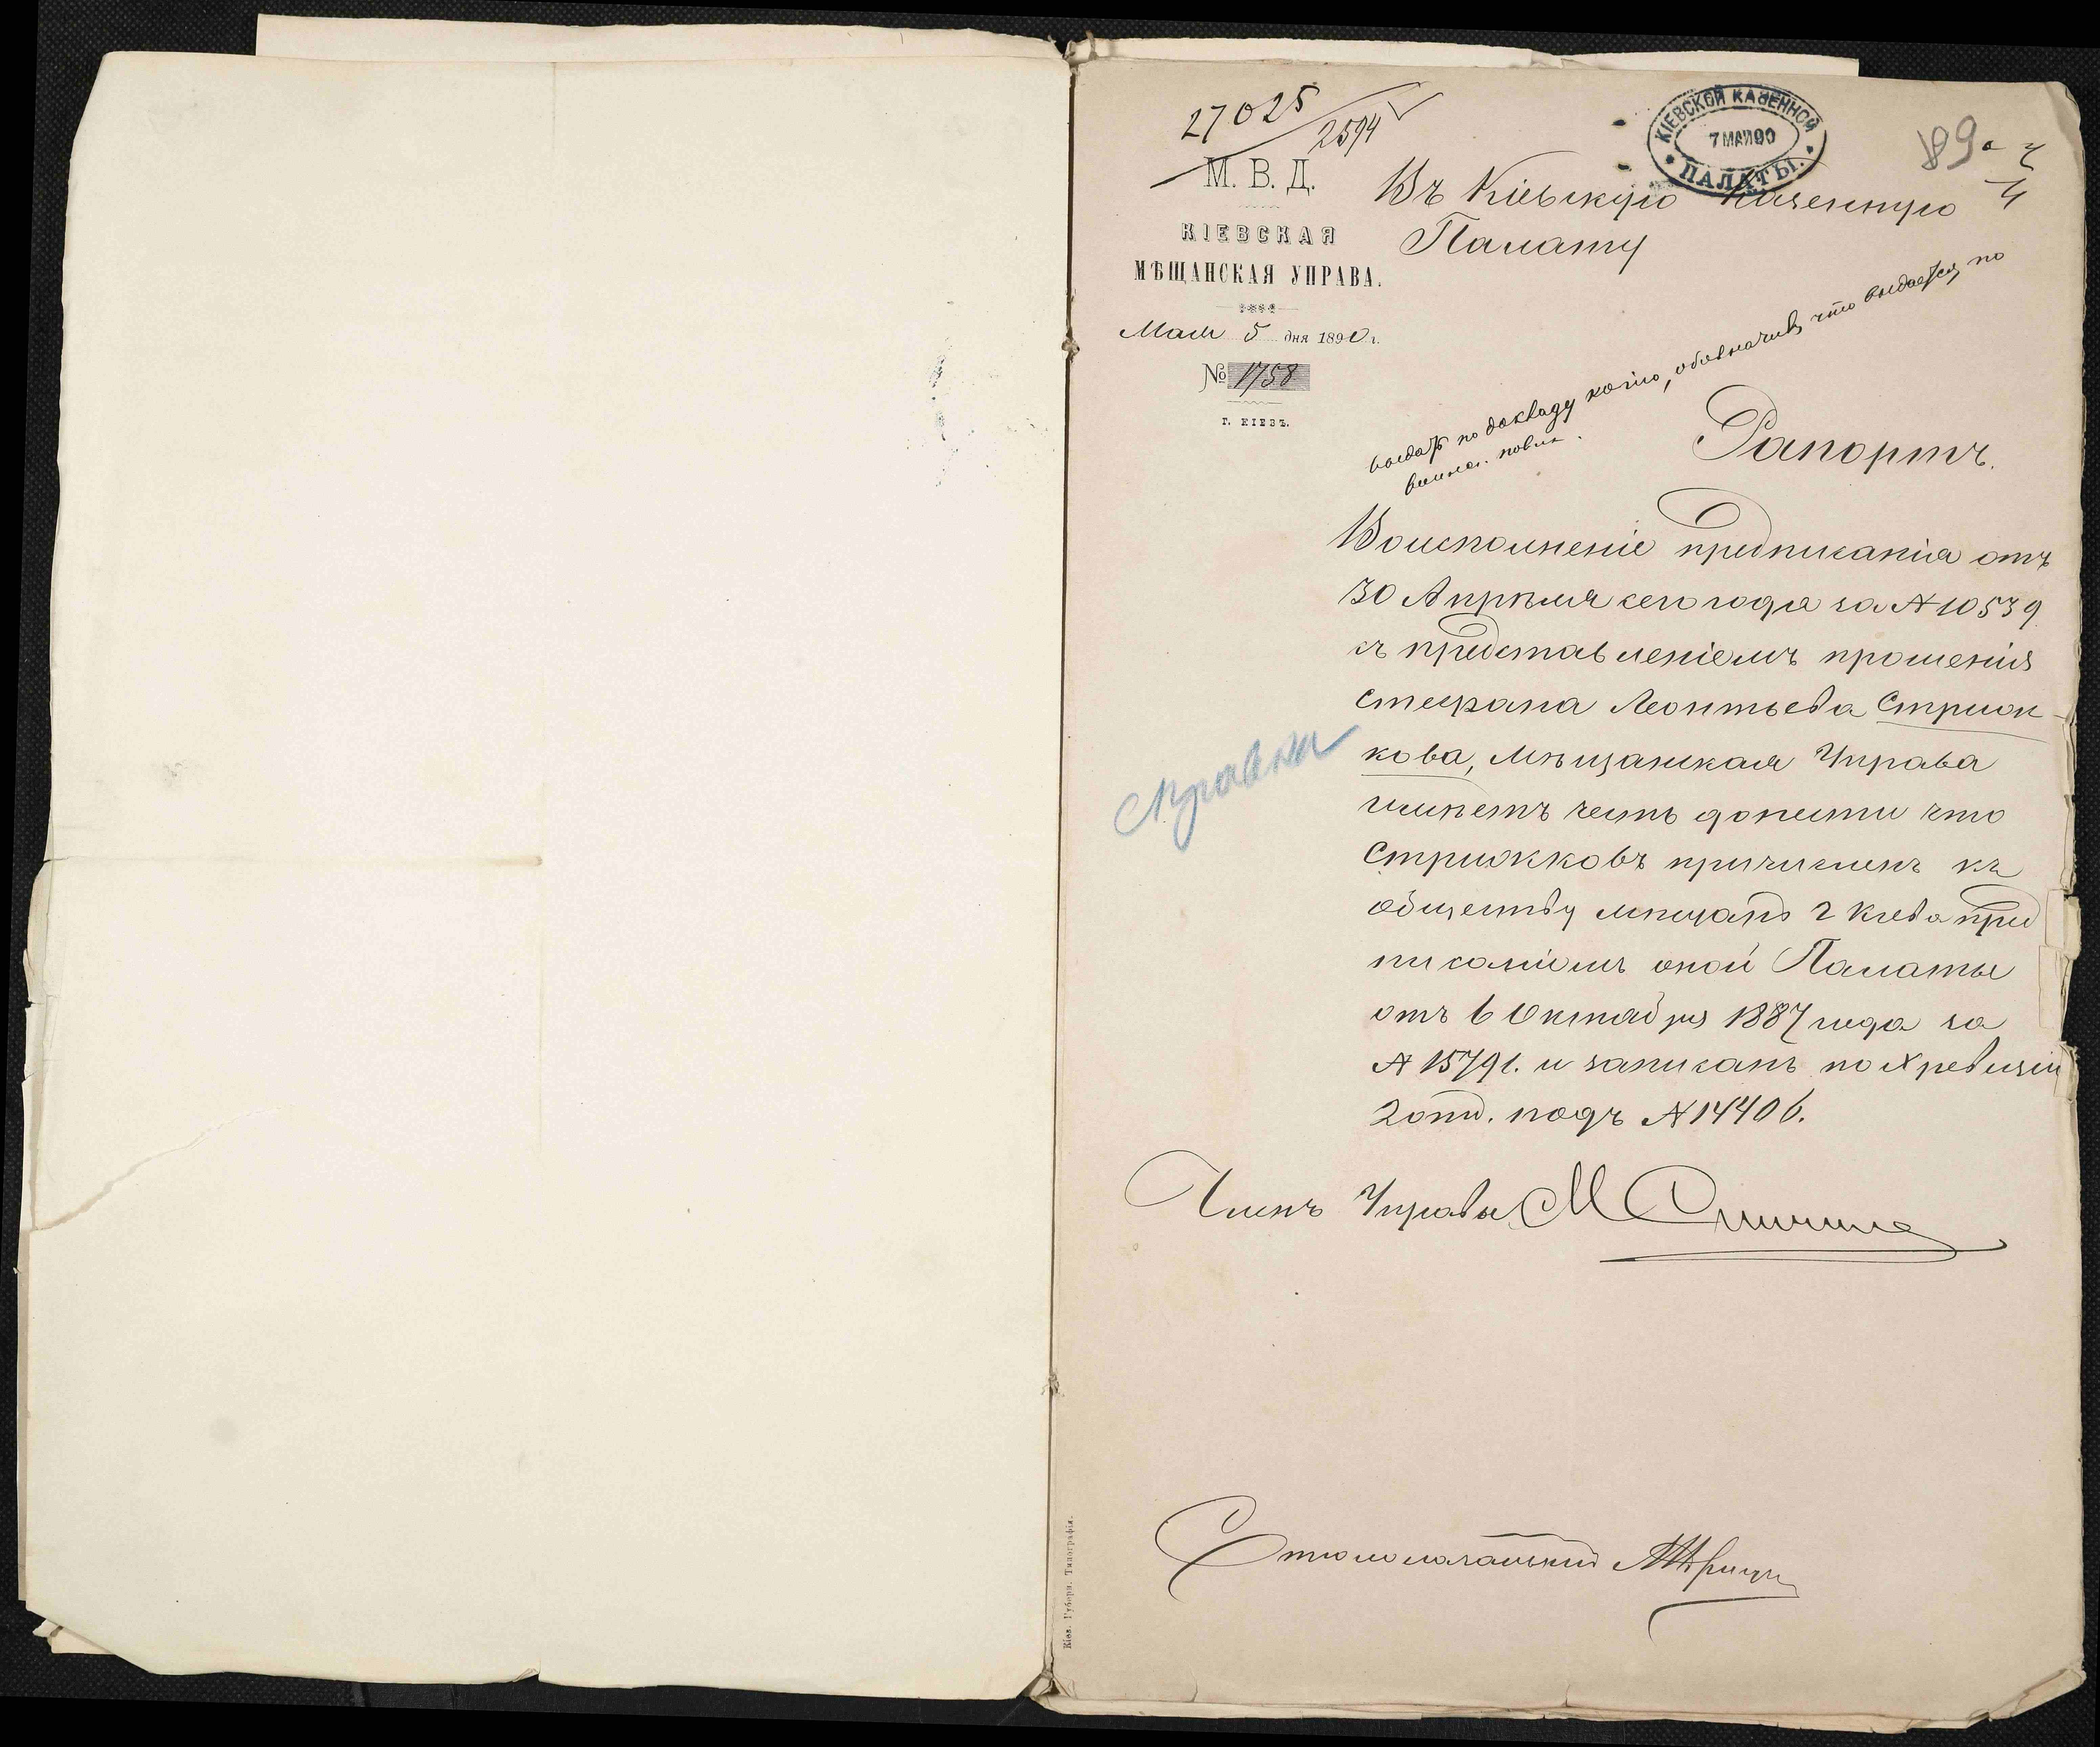 27025/2594
М. В. Д.
КІЕВСКАЯ
МѢЩАНСКАЯ УПРАВА.
Маія 5 дня 1890 г.
№ 1758
Г. КІЕВЪ.
КІЕВСКОЙ КАЗЕННОЙ
7 МАЯ 90
ПАЛАТЫ.
89
Въ Кіевскую Казенную
Палату
выдать по докладу копію, обозначивъ что выдается по
воинск. повин.
Рапортъ.
Воисполненіе предписанія отъ
30 Апрѣля сего года за № 10539
съ представленіемъ прошенія
Стефана Леонтьева Стриж-
кова, Мѣщанская Управа
имѣетъ честь донести что
Стрижковъ причисленъ къ
обществу мѣщанъ г Кіева пред
писаніемъ оной Палаты
отъ 6 Октября 1887 года за
№ 15791. и записанъ по X ревизіи
2 отд. подъ № 14406.
Справка
Членъ Управы М
Столоначальникъ
Кіев. Губерн. Типографія.